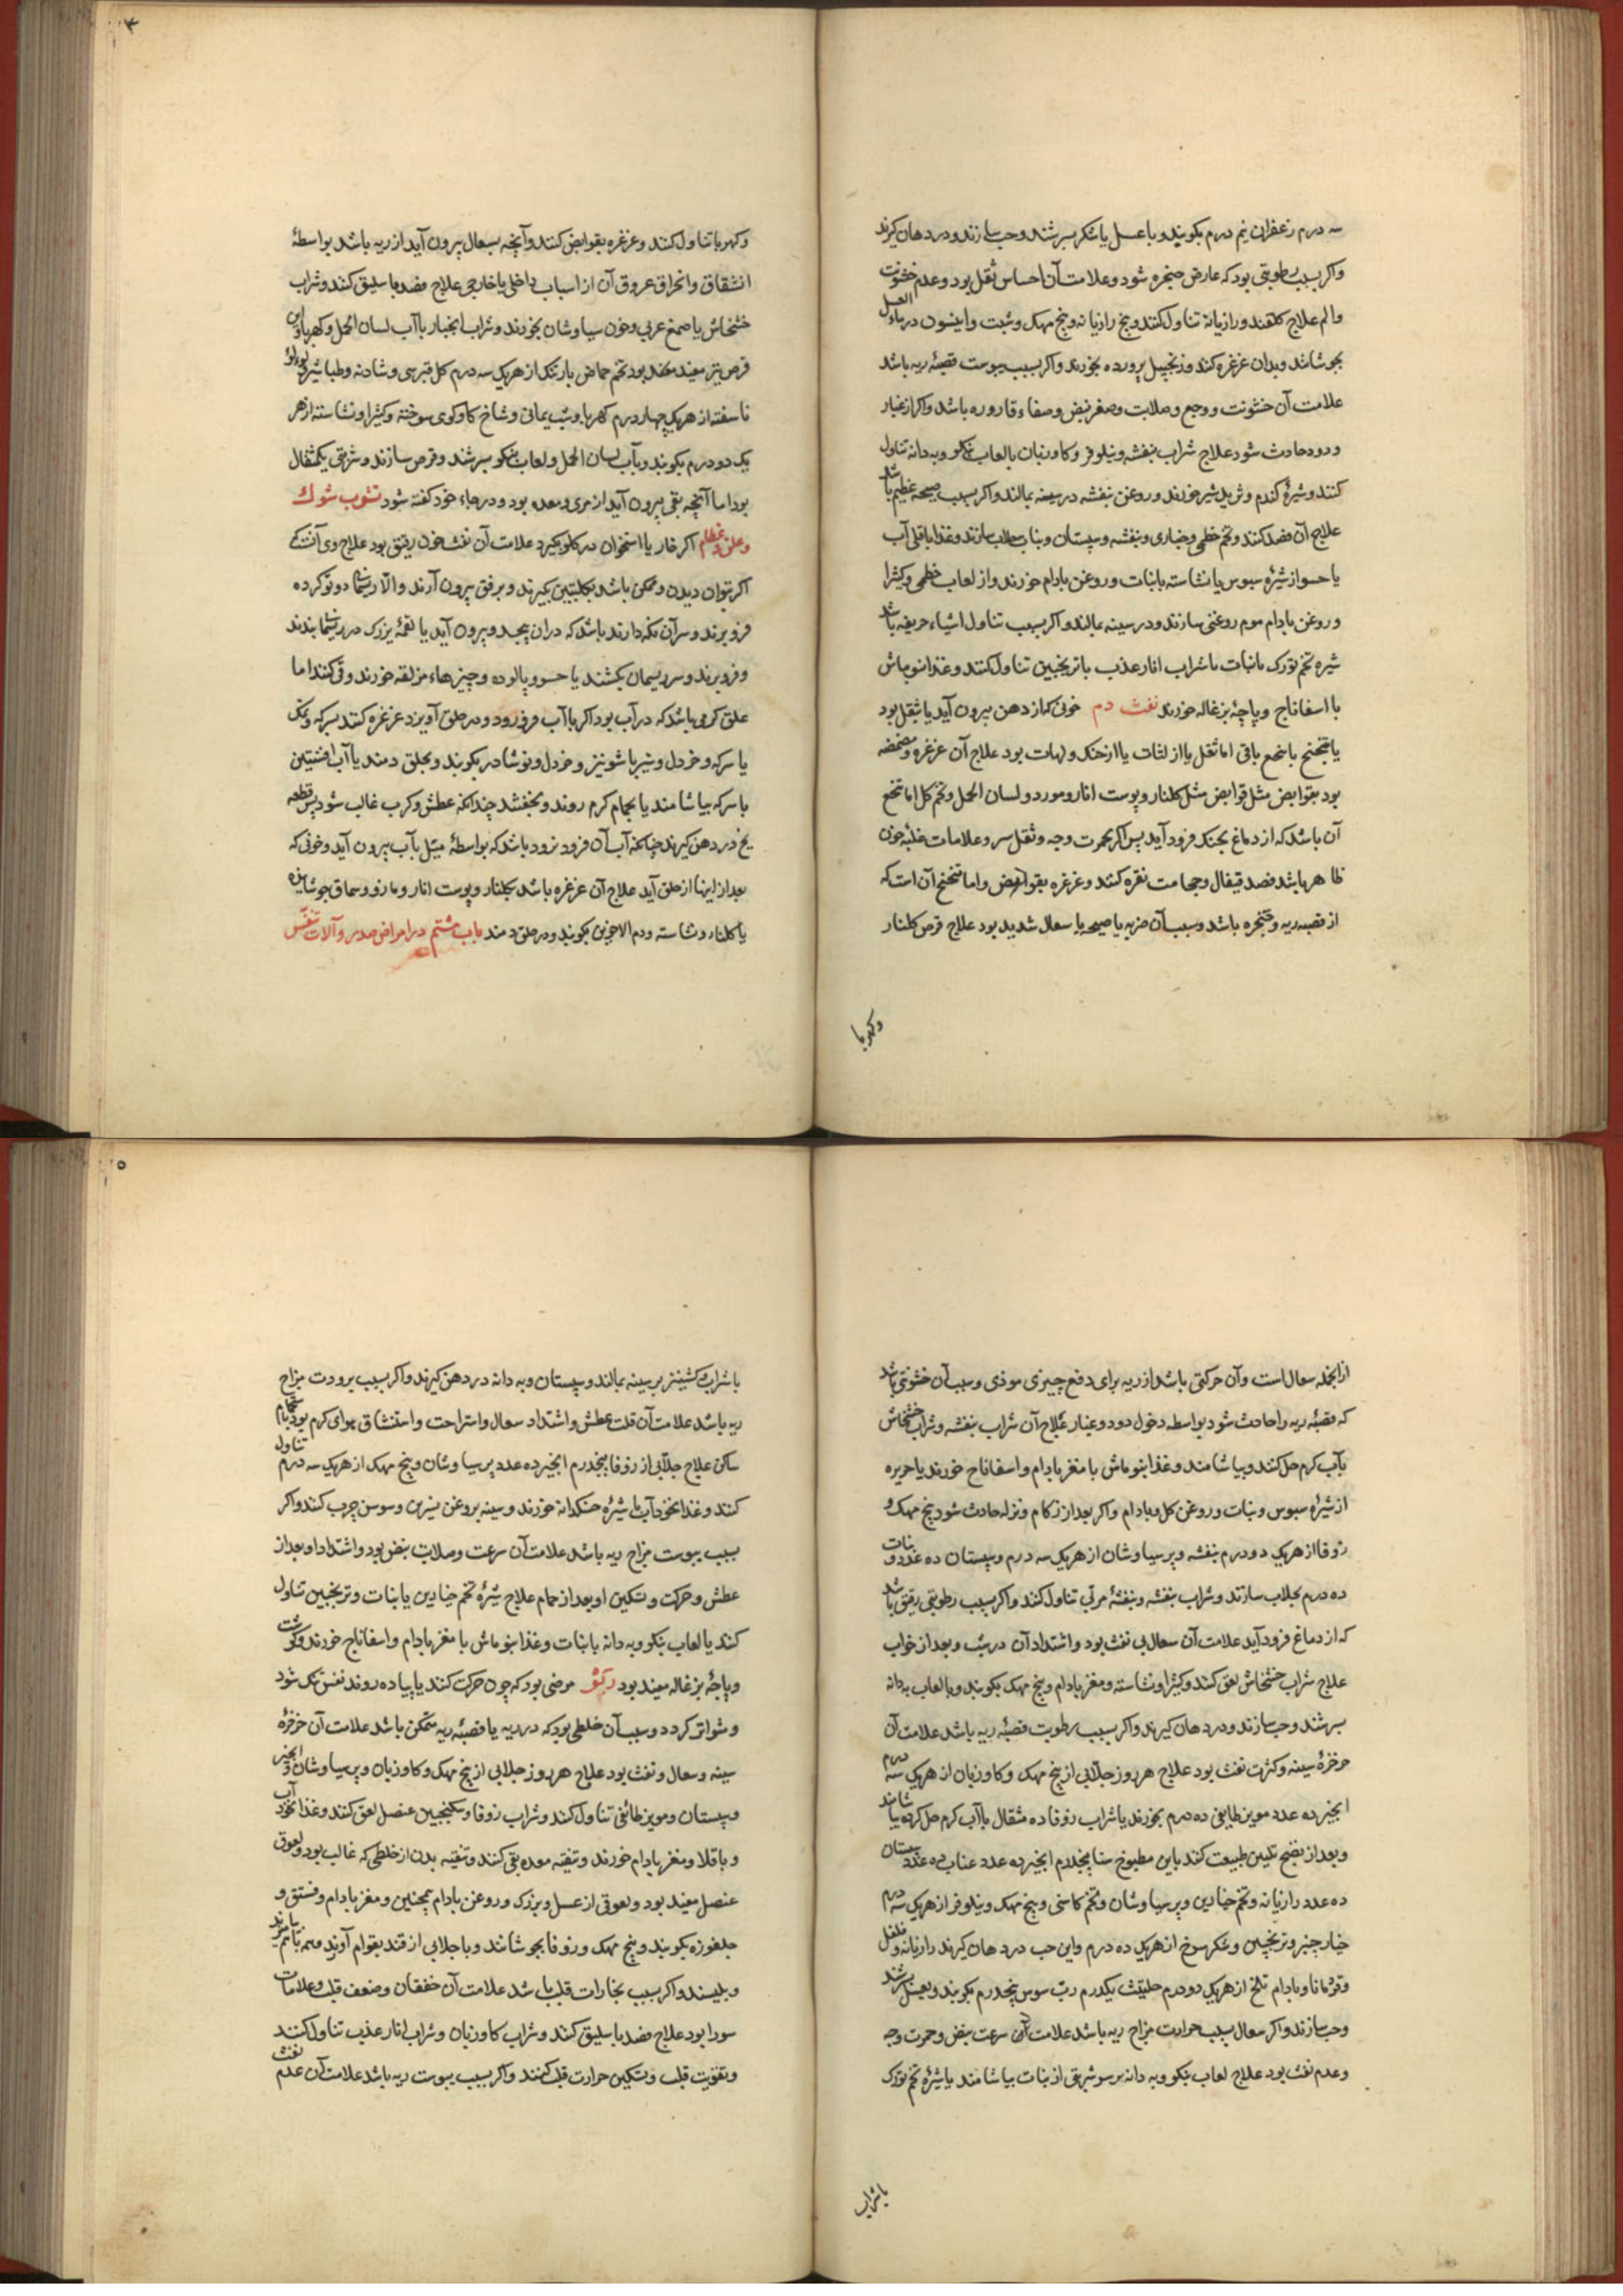 سه درم زعفران نیم درم بکوبند و با عسل یا شکر بسرشند و حب سازند و در دهان کیرند
واکر بسبب رطوبتی بود که عارض حنجره شود و علامت آن احساس ثقل بود و عدم خشونت
والم علاج کلقند و رازیانه تناول کنند و بیخ رازیانه و بیخ مهک و شبت و انیسون در ماء العسل
بجوشانند و بدان غرغره کنند و زنجبیل پرورده بخورند واکر بسبب یبوست قصبهٔ ریه باشد
علامت آن خشونت و وجع و صلابت و صغر نبض و صفاء قاروره باشد واکر از غبار
و دود حادث شود علاج شراب بنفشه و نیلوفر و کاوزبان بالعاب بنکو و به دانه تناول
کنند و شیرهٔ کندم و ثرید شیر خورند و روغن بنفشه در سینه بمالند واکر بسبب صیحه عظیم باشد
علاج آن فصد کنند و تخم خطمی و خبازی و بنفشه و سپستان و نبات جلاب سازند و غذا باقلی آب
یا حسو از شیرهٔ سبوس یا نشاسته با نبات و روغن بادام خورند و از لعاب خطمی و کثیرا
و روغن بادام موم روغنی سازند و در سینه بمالند واکر بسبب تناول اشیاء حریفه باشد
شیره تخم تورک با نبات یا شراب انار عذب با ترنجبین تناول کنند و غذا بنوماش
با اسفاناج و پاچهٔ بزغاله خورند نفث دم خونی که از دهن بیرون آید یا بثقل بود
یا بتنحنح یا بتنخع یا بقی اما ثقل یا از لثات یا از حنک و لهات بود علاج آن غرغره و مضمضه
بود بقوابض مثل قوابض مثل کلنار و پوست انار و مورد و لسان الحمل و تخم کل اما تنخع
آن باشد که از دماغ بحنک فرود آید پس اکر حمرت وجه و ثقل سر و علامات غلبهٔ خون
ظاهر باشد فصد قیفال و حجامت نقره کنند و غرغره بقوابض واما تنحنح آن است که
از قصبه ریه و حنجره باشد و سبب آن ضربه یا صیحه یا سعال شدید بود علاج قرص کلنار
وکهربا
۴
وکهربا تناول کنند و غرغره بقوابض کنند و آنچه بسعال بیرون آید از ریه باشد بواسطهٔ
انشقاق و انخراق عروق آن از اسباب داخلی یا خارجی علاج فصد باسلیق کنند و شراب
خشخاش یا صمغ عربی و خون سیاوشان بخورند و شراب انجبار با آب لسان الحمل و کهربا و این
قرص نیز مفید بود تخم حماض بارتنک از هر یک سه درم کل قبرسی و شادنه و طباشیر و لولو
ناسفته از هر یک چهار درم کهربا و شب یمانی و شاخ کاوکوی سوخته و کثیرا و نشاسته از هر
یک دو درم بکوبند و بآب لسان الحمل و لعاب بنکو بسرشند و قرص سازند و شربتی یکمثقال
بود اما آنچه بقی بیرون آید از مری و معده بود و در جاء خود کفته شود نشوب شوک
و علق و عظام اکر خار یا استخوان در کلو بکیرد علامت آن نفث خون رقیق بود علاج وی آنست که
اکر بتوان دیدن و ممکن باشد بکلبتین بکیرند و برفق بیرون آرند والا ریسمانی دوتو کرده
فرو برند و سر آن نکه دارند باشد که در آن پیچد و بیرون آید یا لقمهٔ بزرک در ریسمان بندند
و فرو برند و سر ریسمان بکشند یا حسو و پالوده و چیزهاء مزلقه خورند و قی کنند اما
علق کرمی باشد که در آب بود اکر با آب فرو رود و در حلق آویزد غرغره کنند بسرکه و نمک
یا سرکه و خردل و شیر یا شونیز و خردل و نوشادر بکوبند و بحلق دمند یا آب افسنتین
با سرکه بیاشامند یا بحمام کرم روند و بخفسند چندانکه عطش و کرب غالب شود پس قطعه
یخ در دهن کیرند چنانکه آب آن فرو نرود باشد که بواسطهٔ میل بآب بیرون آید و خونی که
بعد از اینها از حلق آید علاج آن غرغره باشد بکلنار و پوست انار و مازو و سماق جوشانیده
یا کلنار و نشاسته و دم الاخوین بکوبند و در حلق دمند باب هشتم در امراض صدر و آلات تنفس
از انجمله سعال است و آن حرکتی باشد از ریه برای دفع چیزی موذی و سبب آن خشونتی باشد
که قصبهٔ ریه را حادث شود بواسطه دخول دود و غبار علاج آن شراب بنفشه و شراب خشخاش
بآب کرم حل کنند و بیاشامند و غذا بنوماش با مغز بادام و اسفاناخ خورند یا حریره
از شیرهٔ سبوس و نبات و روغن کل و بادام واکر بعد از زکام و نزله حادث شود بیخ مهک و
زوفا از هر یک دو درم بنفشه و پرسیاوشان از هر یک سه درم و سپستان ده عدد و نبات
ده درم بجلاب سازند و شراب بنفشه و بنفشهٔ مربی تناول کنند واکر بسبب رطوبتی رقیق باشد
که از دماغ فرود آید علامت آن سعال بی نفث بود و اشتداد آن در شب و بعد از خواب
علاج شراب خشخاش لعق کنند و کثیرا و نشاسته و مغز بادام و بیخ مهک بکوبند و بالعاب به دانه
بسرشند و حب سازند و در دهان کیرند واکر بسبب رطوبت قصبهٔ ریه باشد علامت آن
خرخرهٔ سینه و کثرت نفث بود علاج هر روز جلابی از بیخ مهک و کاوزبان از هر یک سه درم
انجیر ده عدد مویز طایفی ده درم بخورند یا شراب زوفا ده مثقال با آب کرم حل کرده بیاشامند
و بعد از نضج تلیین طبیعت کند باین مطبوخ سنا پنجدرم انجیر ده عدد عناب ده عدد سپستان
ده عدد رازیانه و تخم خیارین و پرسیاوشان و تخم کاسنی و بیخ مهک و نیلوفر از هر یک سه درم
خیار چنبر و ترنجبین و شکر سرخ از هر یک ده درم و این حب در دهان کیرند رازیانه و فلفل
و قردمانا و بادام تلخ از هر یک دو درم حلتیت یکدرم رب سوس پنجدرم بکوبند و بعسل بسرشند
و حب سازند واکر سعال بسبب حرارت مزاج ریه باشد علامت آن سرعت نبض و حمرت وجه
و عدم نفث بود علاج لعاب بنکو و به دانه بر سر شربتی از نبات بیاشامند یا شیرهٔ تخم تورک
با شراب
۵
با شراب کشنیز بر سینه بمالند و سپستان و به دانه در دهن کیرند واکر بسبب برودت مزاج
ریه باشد علامت آن قلت عطش و اشتداد سعال و استراحت و استنشاق هوای کرم بود و بحمام
ساکن علاج جلابی از زوفا پنجدرم انجیر ده عدد پرسیاوشان و بیخ مهک از هر یک سه درم تناول
کنند و غذا نخودآب با شیرهٔ خسکدانه خورند و سینه بروغن نسرین و سوسن چرب کنند واکر
بسبب یبوست مزاج ریه باشد علامت آن سرعت و صلابت نبض بود و اشتداد او بعد از
عطش و حرکت و تسکین او بعد از حمام علاج شیرهٔ تخم خیارین با نبات و ترنجبین تناول
کنند یا لعاب بنکو و به دانه با نبات و غذا بنوماش با مغز بادام و اسفاناج خورند و کوشت
و پاچهٔ بزغاله مفید بود ربو مرضی بود که چون حرکت کنند یا پیاده روند نفس تنک شود
و متواتر کردد و سبب آن خلطی بود که در ریه یا قصبهٔ ریه متمکن باشد علامت آن خرخرهٔ
سینه و سعال و نفث بود علاج هر روز جلابی از بیخ مهک و کاوزبان و پرسیاوشان و انجیر
و سپستان و مویز طائفی تناول کنند و شراب زوفا و سکنجبین عنصل لعق کنند و غذا نخودآب
و باقلا و مغز بادام خورند و تنقیه معده بقی کنند و تنقیه بدن از خلطی که غالب بود و لعوق
عنصل مفید بود و لعوقی از عسل و بزرک و روغن بادام همچنین و مغز بادام و فستق و
جلغوزه بکوبند و بیخ مهک و زوفا بجوشانند و با جلابی از قند بقوام آورند
و بلیسند واکر بسبب بخارات قلب باشد علامت آن خفقان و ضعف قلب و علامات
سودا بود علاج فصد باسلیق کنند و شراب کاوزبان و شراب انار عذب تناول کنند
و تقویت قلب و تسکین حرارت قلب کنند واکر بسبب یبوست ریه باشد علامت آن عدم نفث